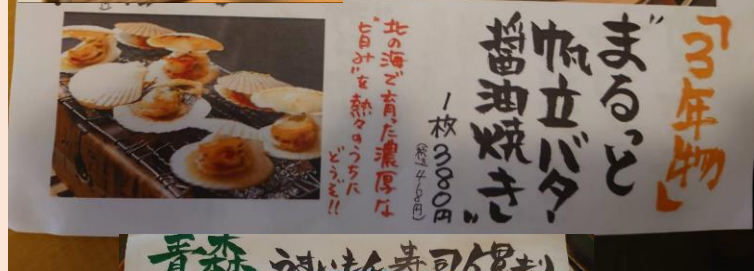 「3年物」
"まるっと
帆立バター
醤油焼き"
1枚380円
(税込418円)
北の海で育った濃厚な
"旨み"を熱々のうちに
どうぞ!!
青森 うまいもん寿司6貫